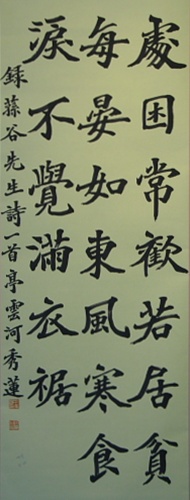 處困常歡若居貧
每晏如東風寒食
淚不覺滿衣裾
錄蓀谷先生詩一首亭雲河秀蓮